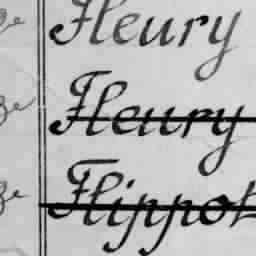 Fleury
Fleury
Flippot